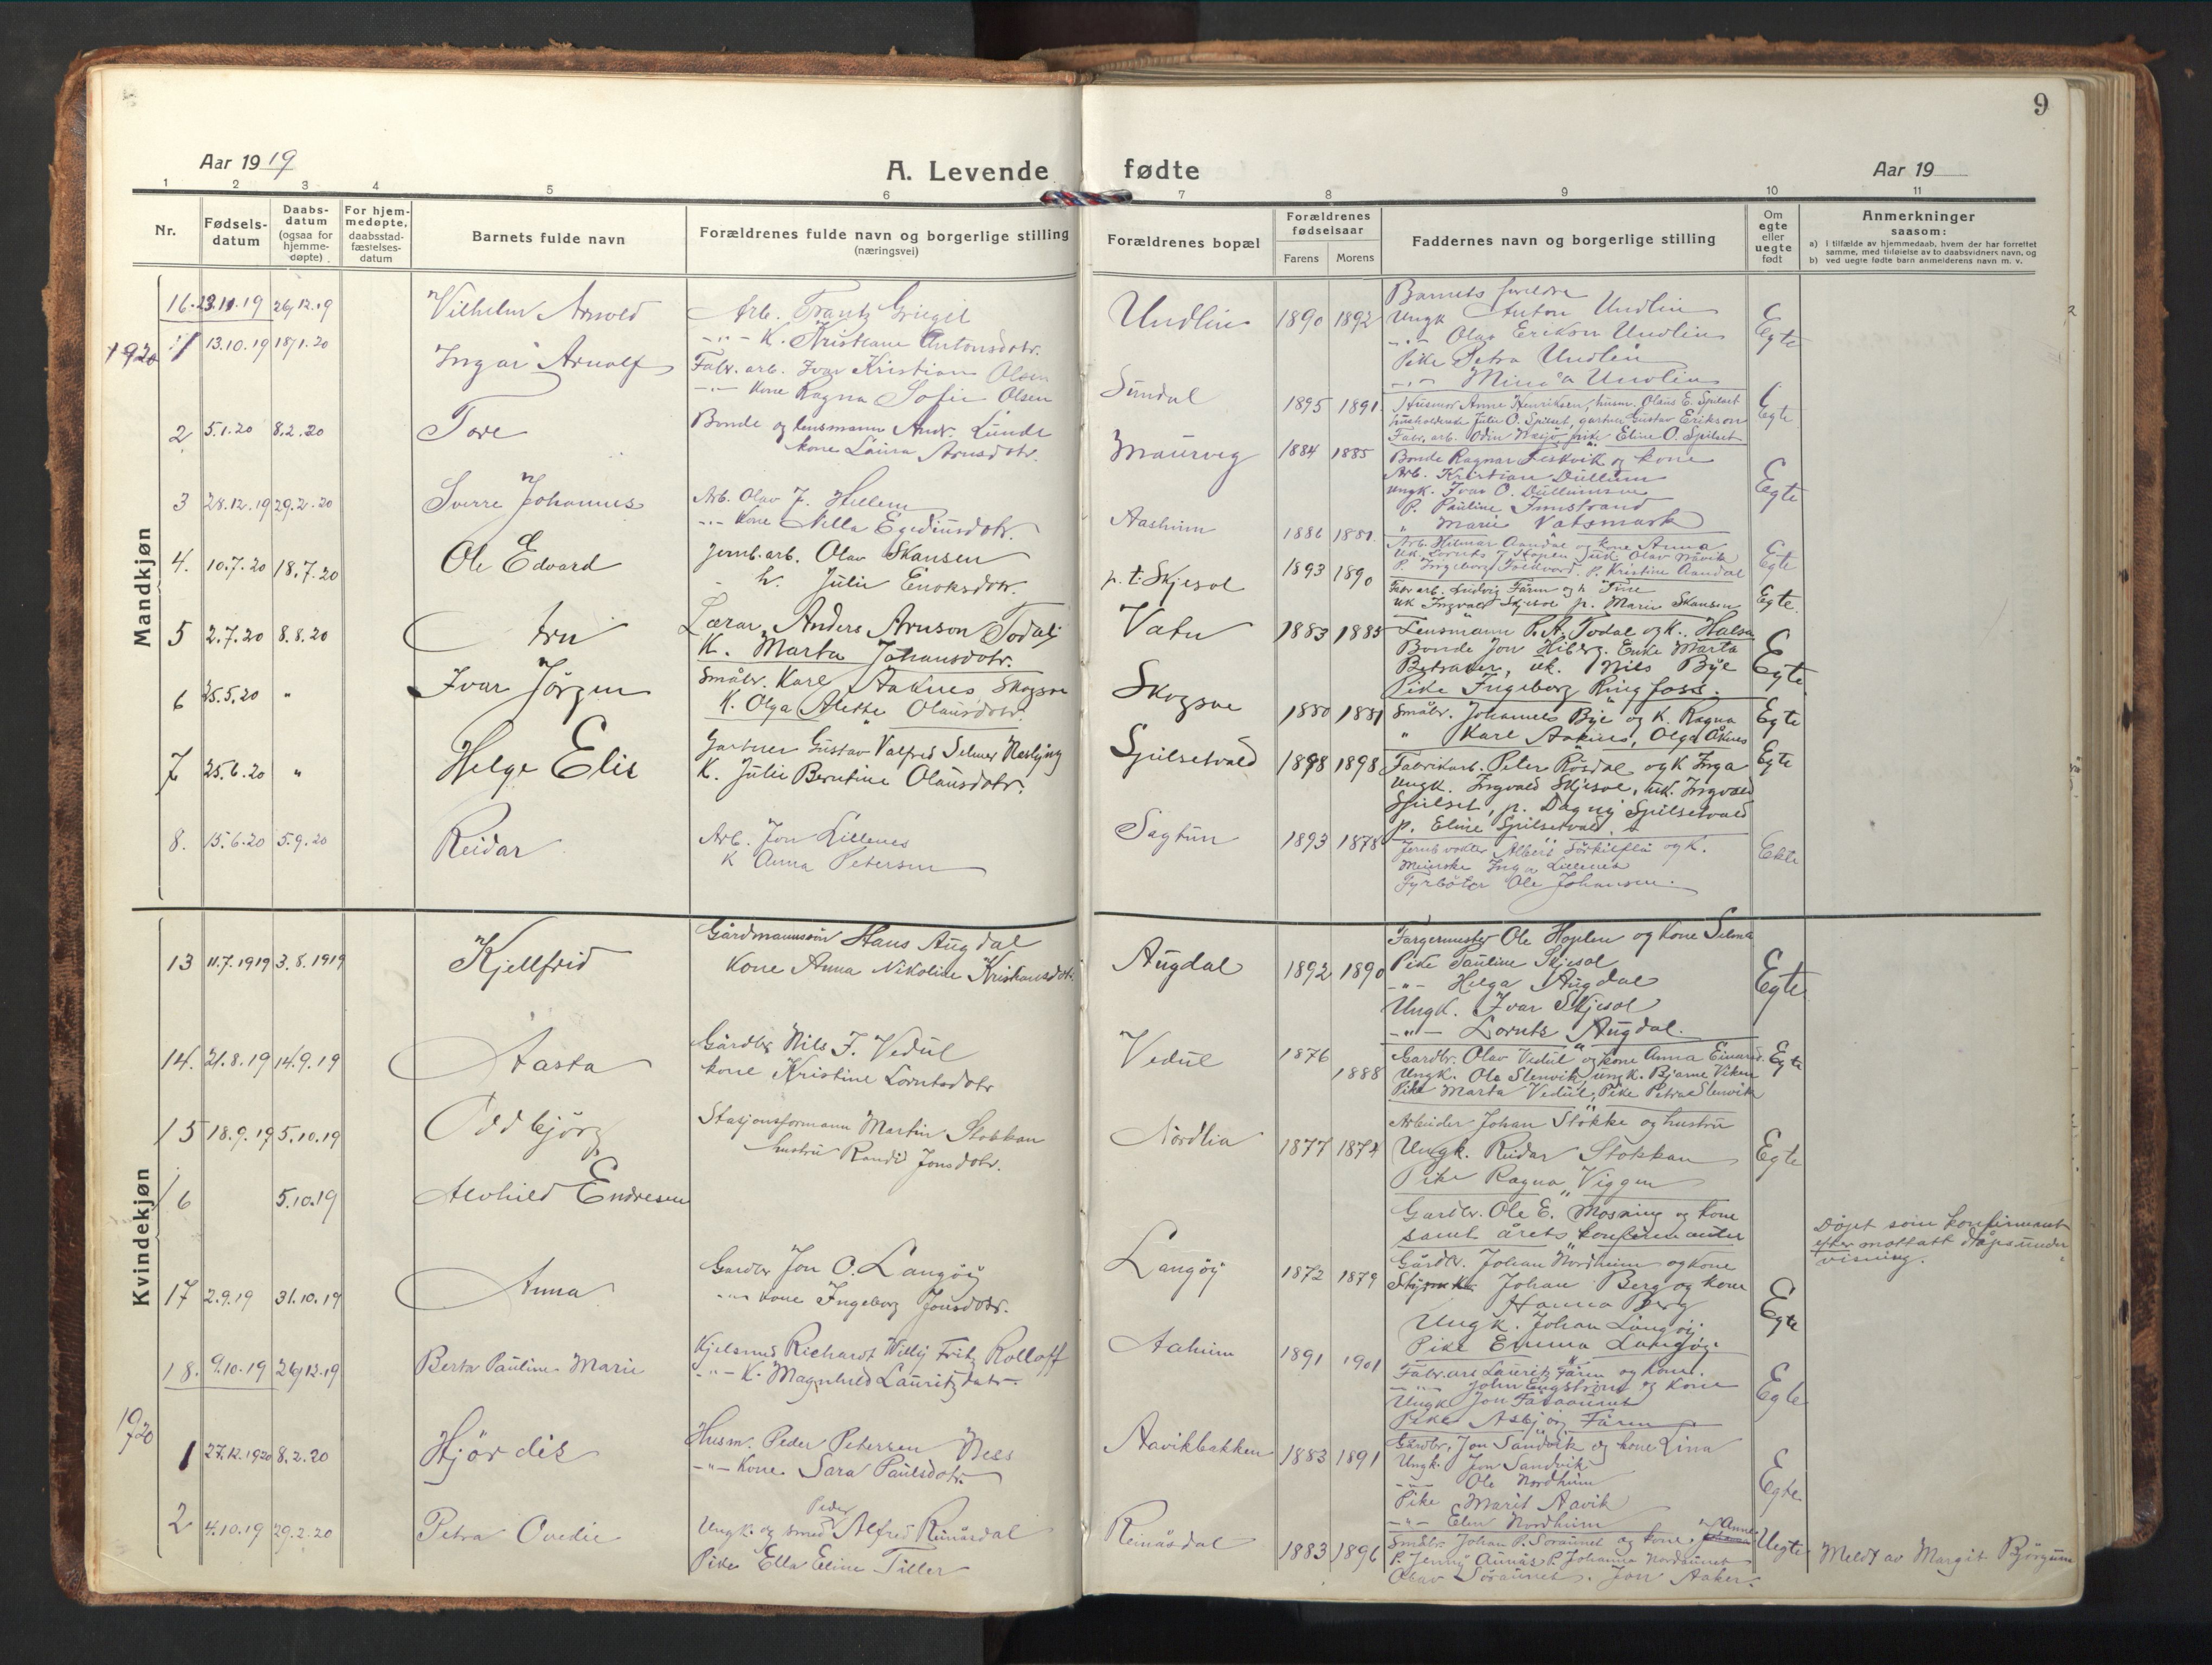 9
Aar 1919
A. Levende fødte
Aar 19
1 2 3 4 5 6 7 8 9 10 11
Nr.
Fødsels-
datum
Daabs-
datum
(ogsaa for
hjemme-
døpte)
For hjem-
medøpte,
daabsstad-
fæstelses-
datum
Barnets fulde navn
Forældrenes fulde navn og borgerlige stilling
(næringsvei)
Forældrenes bopæl
Forældrenes
fødselsaar
Farens Morens
Faddernes navn og borgerlige stilling
Om
egte
eller
uegte
født
Anmerkninger
saasom:
a) i tilfælde av hjemmedaab, hvem der har forrettet
samme, med tilføielse av to daabsvidners navn, og
b) ved uegte fødte barn anmelderens navn m. v.
Mandkjøn
16. 23.11.19 26/12.19 Vilhelm Arnold
Arb. Frantz Griegel
-"- K. Kristiane Antonsdotr.
Undlin 1890 1892
Barnets foreldre
Ungk Anton Undlin
-"- Olav Erikson Undlin
Pike Petra Undlin
-"- Minda Undlin
Egte
1920 1 13.10.19 18/1.20 Ingar Arnolf
Fabr. arb. Ivar Kristian Olsen
-"- Kone Ragna Sofie Olsen
Sundal 1895 1891
Husmor Anne Henriksen, husm. Olaus E. Spilset
husholderske Julie O. Spilset, gartner Gustav Erikson
Fabr. arb. Odin pike Eline O. Spilset
Egte
2 5.1.20 8.2.20 Tore
Bonde og lensmann Andr. Lunde
kone Laura Arnsdotr.
Maurveg 1884 1885
Bonde Ragnar Fiskvik og kone
Arb. Kristian Dullum
ungk. Ivar O. Dullumsve
P. Pauline Innstrand
" Marie Vatsmark
Egte
3 28.12.19 29.2.20 Sverre Johannes
Arb. Olav J. Hellem
-"- Kone Nella Egediusdotr.
Aasheim 1886 1881.
Arb. Hilmar Aandal og kone Anna
Uk. Lornts J. Hoplen, uk Olav Navik
P. Ingeborg Folkvord. P. Kristine Aandal
Egte
4. 10.7.20 18.7.20 Ole Edvard
Jernb. arb. Olav Skansen
h. Julie Enoksdotr.
p.t. Skjesol 1893 1890
Fabr arb. Ludvig Färm og h Tine
uk Ingvald Skjesol p. Marie Skansen
Egte.
5 2.7.20 8.8.20 Arn
Lærar Anders Arnson Todal
K. Marta Johansdotr.
Vatn 1883 1885
Lensmann P. A. Todal og k., Halsa
Bonde Jon Hiberg. Enke Marta
Betsaker, uk. Nils Bye
Pike Ingeborg Ringfoss.
Egte
6 25.5.20 " Ivar Jörgen
Småbr. Karl Aaknes Skogsve
K. Olga Alette Olausdotr.
Skogsve 1880 1881
Småbr. Johannes Bye og K. Ragna
" Karl Aaknes, Olga Åknes
Egte
7 25.6.20 " Helge Elis
Gartner Gustav Valfred Selmer Neslyng
K. Julie Berntine Olausdotr.
Spilsetvald 1898 1898
Fabrikarb. Peter Rösdal og K Inga
ungk. Ingvald Skjesol, uk. Ingvald
Spilset, p. Dagny Spilsetvald
p. Eline Spilsetvald.
Egte
8. 15.6.20 5.9.20 Reidar
Arb. Jon Lillenes
K Anna Petersen
Sagtun 1893 1878
Jernb vokter Albert Torkilflå og K.
Meierske Inga Lillenes
Fyrböter Ole Johansen.
Ekte
Kvindekjøn
13 11.7.1919 3.8.1919 Kjellfrid
Gårdmannssön Hans Augdal
Kone Anna Nikoline Kristiansdotr.
Augdal 1892 1890
Fargermester Ole Hoplen og kone Selma
Pike Pauline Skjesol
-"- Helga Augdal
Ungk. Ivar Skjesol
-"- Lornts Augdal.
Egte
14. 21.8.19 14.9.19 Aasta
Gårdbr Nils J. Vedul
kone Kristine Lorntsdotr
Vedul 1876 1888
Gardbr. Olav Vedul og kone Anna
Ungk. Ole Slenvik, ungk. Bjarne Viken
Pike Marta Vedul, Pike Petra Slenvik
Egte
15 18.9.19 5.10.19 Oddbjörg
Stasjonsformann Martin Stokkan
hustru Randi Jonsdotr.
Nordlia 1877 1874
Arbeider Johan Stokke og hustru
Ungk. Reidar Stokkan
Pike Ragna Viggen
Egte
16 5.10.19 Alvhild Endresen
Gardbr. Ole E. Mosning og kone
samt årets konfirmanter
Döpt som konfirmant
efter mottatt dåpsunder
visning.
17 2.9.19 31.10.19 Anna
Gardbr Jon O. Langöy
-"- kone Ingeborg Jonsdotr.
Langöy 1872 1879
Gårdbr. Johan Nordheim og kone
Johan Berg og kone
Hanna Berg
Ungk. Johan Langöy
Pike Emma Langöy
Egte
18. 9.10.19 26/12.19 Berta Pauline Marie
Kjelsmed Richardt Willy Fritz Rolloff
-"- K. Magnhild Lauritzdatr.
Aaheim 1891 1901
Fabr. arb Lauritz Färm og kone.
-"- John Engström og kone
Ungk Jon Faraaunet
Pike Asbjörg Färm
Egte
1920 1 27.12.1920 8.2.20 Hjördis
Husm. Peder Petersen Ness
-"- Kone. Sara Paulsdotr.
Aavikbakken 1883 1891
Gårdbr. Jon Sandvik og kone Lina
Ungk. Jon Sandvik
-"- Ole Nordheim
Pike Marit Aavik
-"- Elen Nordheim
Egte
2 4.10.19 29.2.20 Petra Ovedie
Peder
Ungk. og smed Alfred Reinåsdal
Pike Ella Eline Tiller
Reinåsdal 1883 1896
Småbr Johan P. Soraunet og kone Anne
P. Jenny Aunås P. Johanna Nordaunet
Olav Soraunet. Jon Aaker.
Uegte
Meldt av Margit Björgum